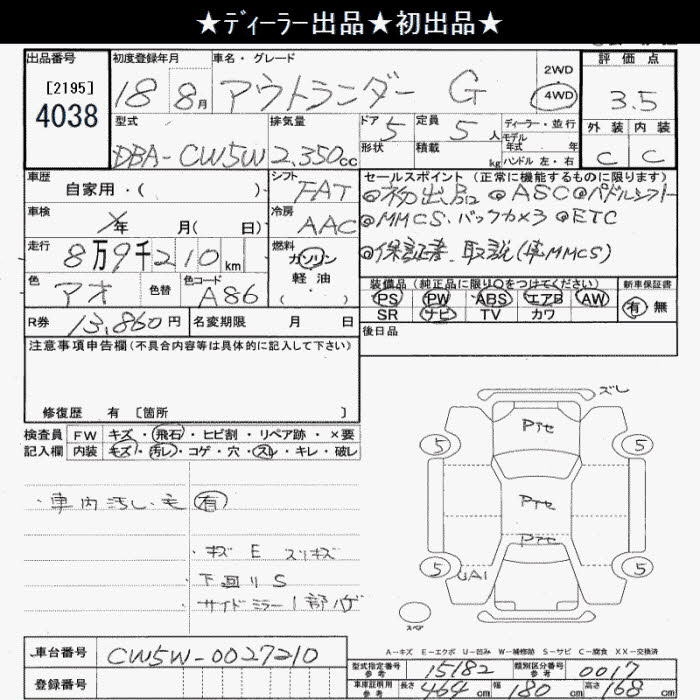 ★ディーラー出品★初出品★
出品番号
[2195]
4038
初度登録年月
18 8月
車名・グレード
アウトランダー G
2WD
4WD
評価点
3.5
外装 内装
C C
型式
DBA-CW5W
排気量
2,350cc
ドア 5
形状
定員 5人
積載 kg
ディーラー・並行
モデル
年式 年
ハンドル 左・右
車歴
自家用・( )
シフト
FAT
セールスポイント(正常に機能するものに限ります)
@初出品 @ASC@パドルシフト
@MMCS.バックカメラ @ETC
@保証書.取説(車MMCS)
車検
年 月( 日)
冷房
AAC
走行
8万9千210km
燃料
ガソリン
軽油
( )
色
アオ
色替
色コード
A86
装備品(純正品に限り○をつけてください)
新車保証書
PS PW ABS エアB AW
SR ナビ TV カワ
有 無
R券 13,860円
名変期限 月 日
後日品
注意事項申告欄(不具合内容等は具体的に記入して下さい)
修復歴 有 [箇所 ]
検査員
記入欄
FW キズ・飛石・ヒビ割・リペア跡・×要
内装 キズ・汚レ・コゲ・穴・スレ・キレ・破レ
・車内汚し.毛有
・キズ E スリキズ
下回り S
・サイドミラー1部ハゲ
ズレ
Pケセ
5 5
Pケセ
Pケセ
5 5
UA1
スペア
A-キズ E-エクボ U-凹み W-補修跡 S-サビ C-腐食 XX-交換済
車台番号 CW5W-0027210
登録番号
型式指定番号
参考
15182
類別区分番号
参考
0017
車庫証明用
参考
長さ 464cm 幅 180cm 高さ 168cm